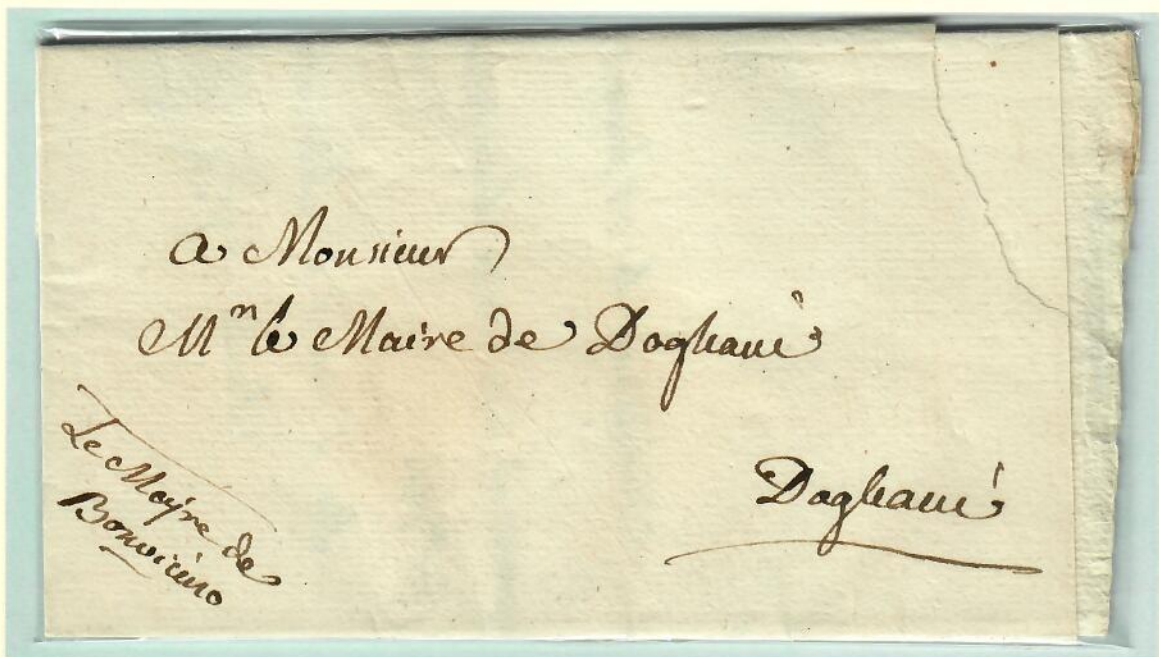 a Monsieur
Mn le Maire de Dogliani
Dogliani
Le Mayre de
Bonvicino